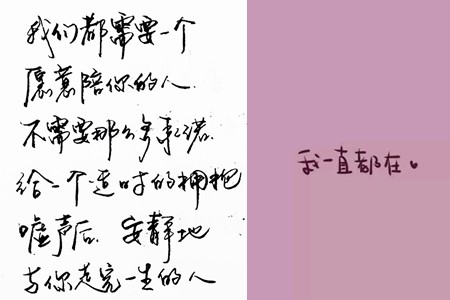 我们都需要一个
愿意陪你的人
不需要那么多承诺.
给一个适时的拥抱
嘘声后.安静地
与你走完一生的人
我一直都在。